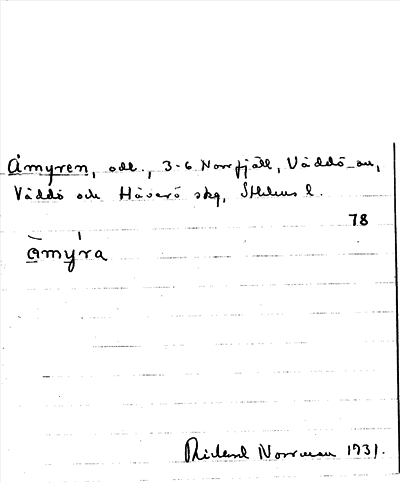 Åmyren, odl., 3-6 Norrfjäll, Väddö-ön,
Väddö och Häverö skg, Sthlms l.
78
åmýra
Rickard Norrman 1931.